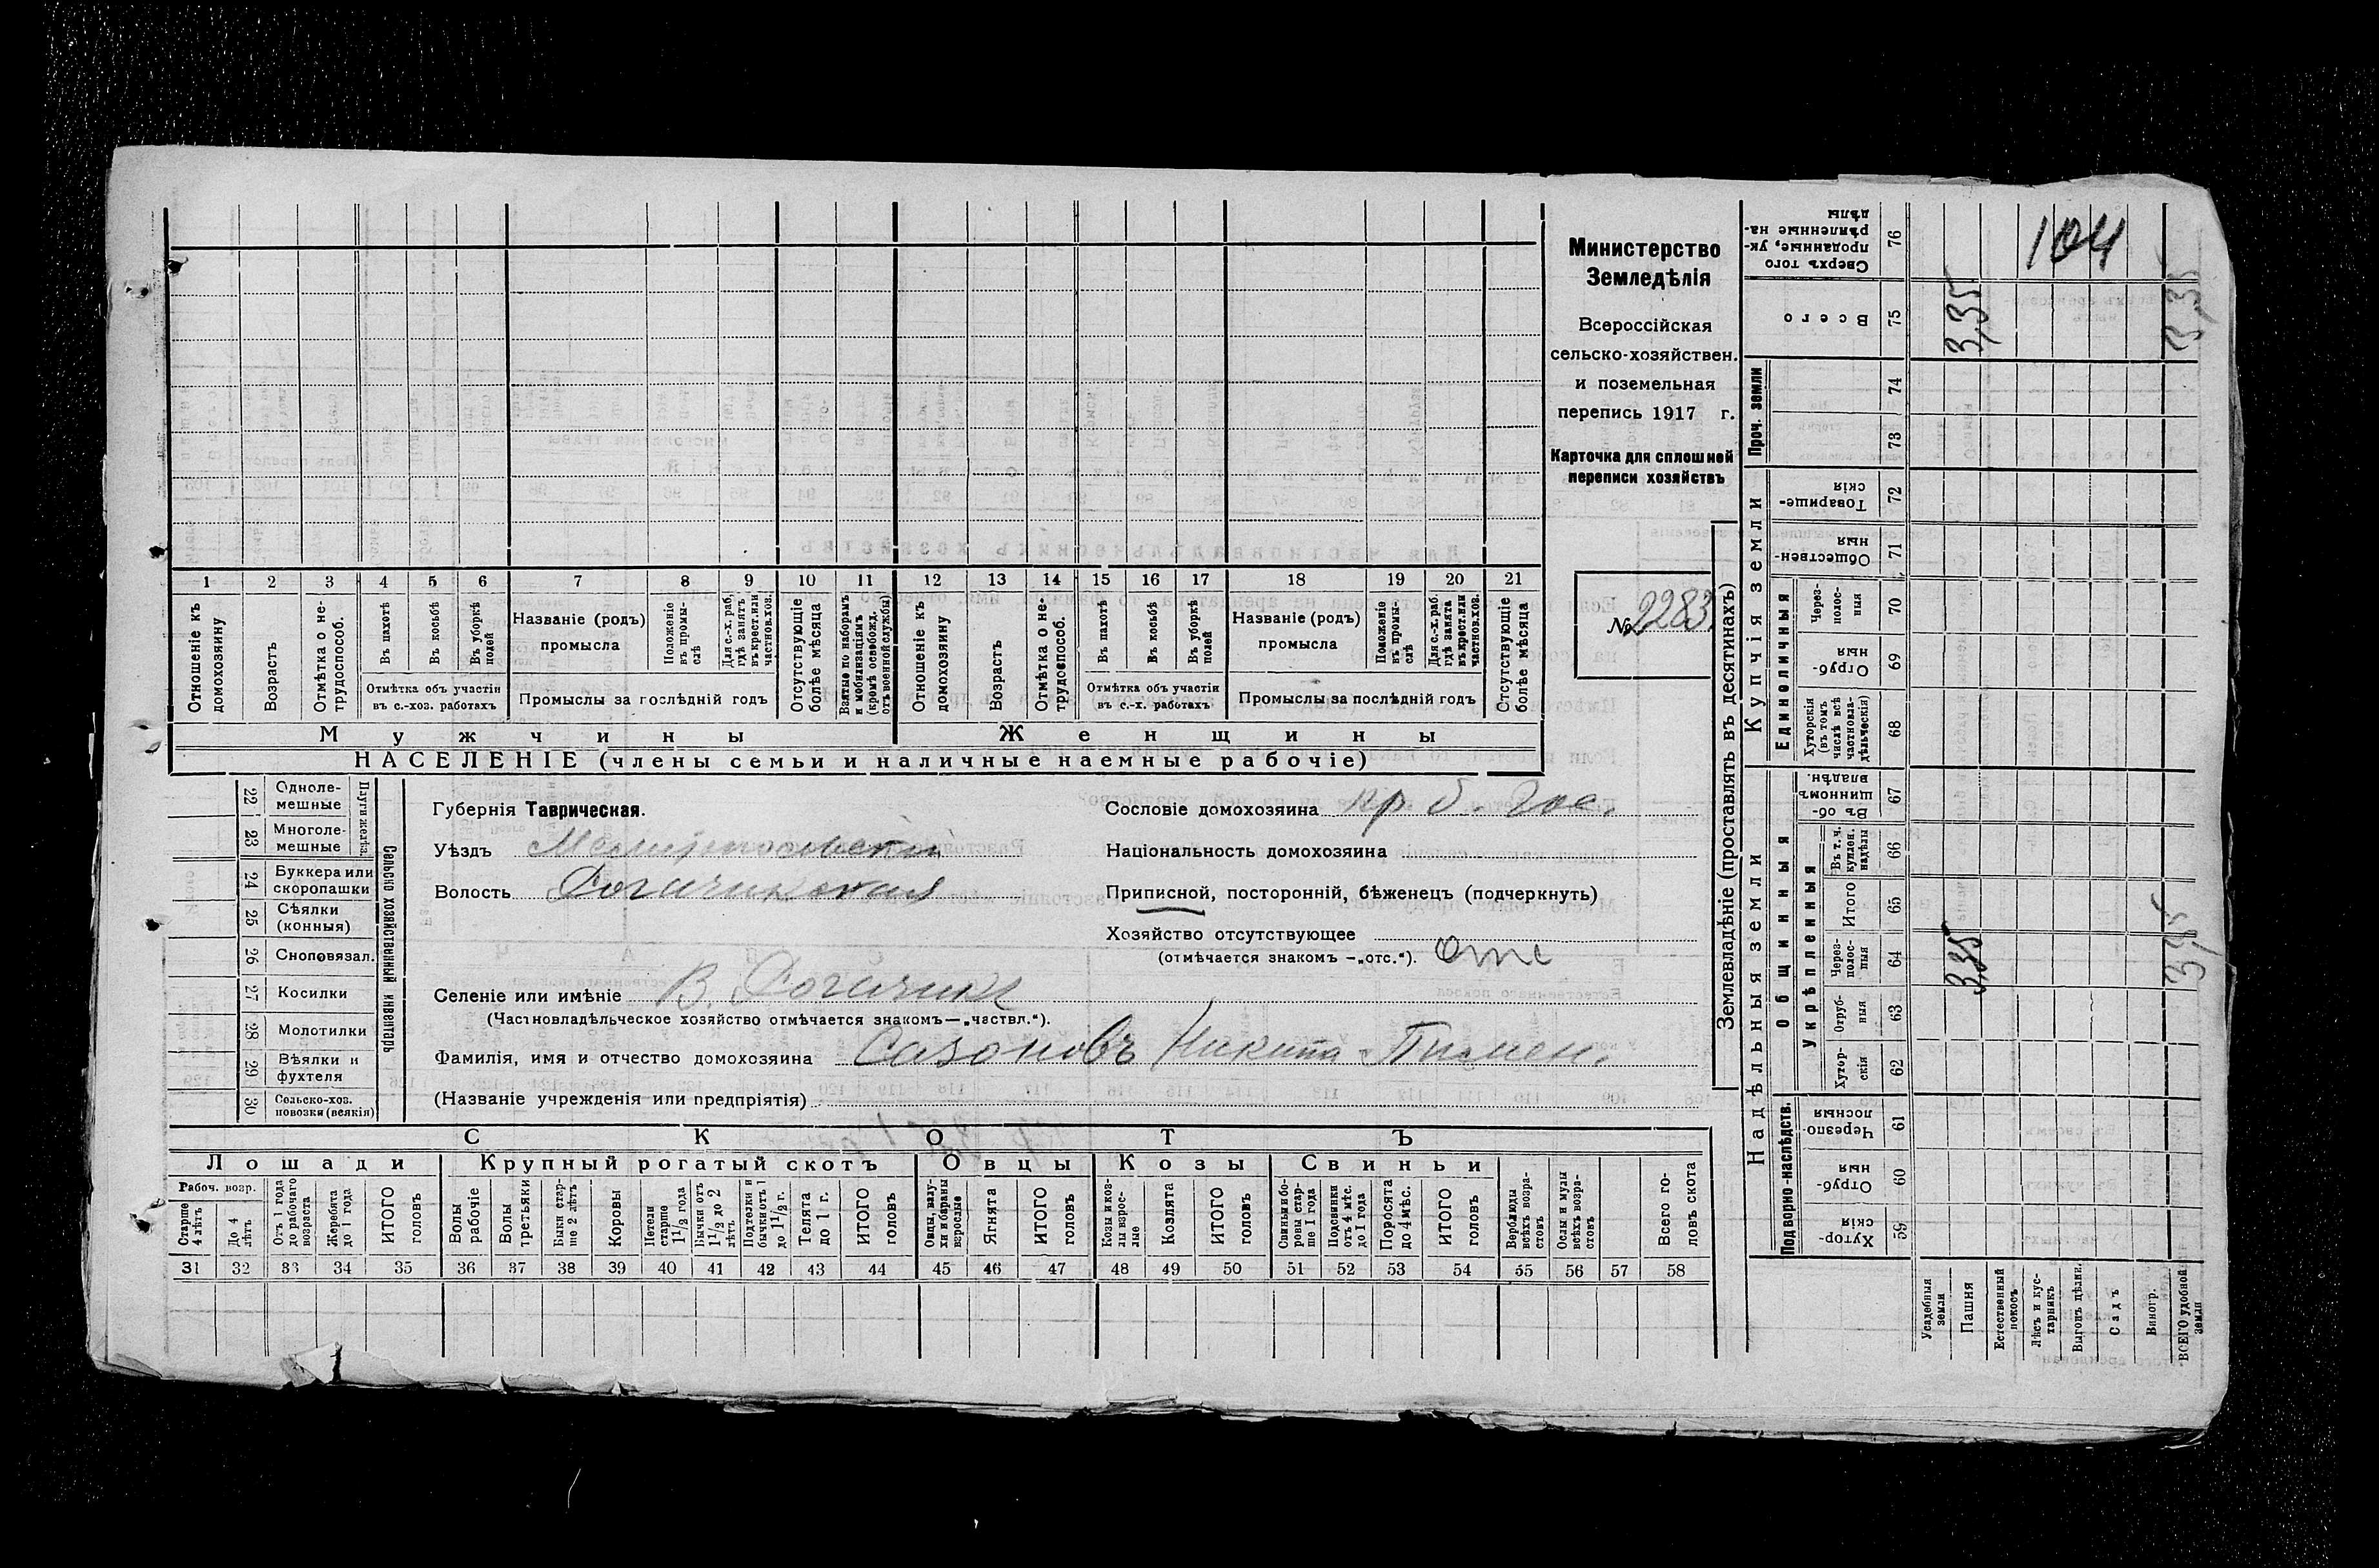 Министерство
Земледѣлія
Всероссійская
сельско-хозяйствен.
и поземельная
перепись 1917 г.
Карточка для сплошной
переписи хозяйствъ
№ 2283
104
1 2 3 4 5 6 7 8 9 10 11 12 13 14 15 16 17 18 19 20 21
Отношеніе къ домохозяину
Возрастъ
Отмѣтка о не-трудоспособ.
Въ пахотѣ
Въ косьбѣ
Въ уборкѣ полей
Отмѣтка объ участіи въ с.-хоз. работахъ
Названіе (родъ) промысла
Положеніе въ промы-слѣ
Для с.-х. раб. гдѣ занятъ въ крест. или частнов. хоз.
Промыслы за послѣдній годъ
Отсутствующіе болѣе мѣсяца
Взятые по наборамъ и мобилизаціямъ (кромѣ освобожд. отъ военной службы)
Отношеніе къ домохозяину
Возрастъ
Отмѣтка о не-трудоспособ.
Въ пахотѣ
Въ косьбѣ
Въ уборкѣ полей
Отмѣтка объ участіи въ с.-х. работахъ
Названіе (родъ) промысла
Положеніе въ промы-слѣ
Для с.-х. раб. гдѣ занята въ крест. или частнов. хоз.
Промыслы за послѣдній годъ
Отсутствующіе болѣе мѣсяца
Мужчины Женщины
НАСЕЛЕНІЕ (члены семьи и наличные наемные рабочіе)
22 Одноле-мешные
23 Многоле-мешные
Плуги желѣз.
24 Буккера или скоропашки
25 Сѣялки (конныя)
26 Сноповязал.
27 Косилки
28 Молотилки
29 Вѣялки и фухтеля
30 Сельско-хоз. повозки (всякія)
Сельско хозяйственный инвентарь
Губернія Таврическая.
Уѣздъ Мелитопольскій
Волость Рогачикская
Сословіе домохозяина кр б. гос.
Національность домохозяина
Приписной, посторонній, бѣженецъ (подчеркнуть)
Хозяйство отсутствующее отс
(отмѣчается знакомъ —„отс.“).
Селеніе или имѣніе В. Рогачик
(Частновладѣльческое хозяйство отмѣчается знакомъ—„частвл.“).
Фамилія, имя и отчество домохозяина Сазоновъ Никита Пимен.
(Названіе учрежденія или предпріятія)
СКОТЪ
Лошади Крупный рогатый скотъ Овцы Козы Свиньи
Рабоч. возр.
Старше 4 лѣтъ
До 4 лѣтъ
Отъ 1 года до рабочаго возраста
Жеребята до 1 года
ИТОГО головъ
Волы рабочіе
Волы третьяки
Быки стар-ше 2 лѣтъ
Коровы
Нетели старше 1 1/2 года
Бычки отъ 1 1/2 до 2 лѣтъ
Подтелки и бычки отъ 1 до 1 1/2 г.
Телята до 1 г.
ИТОГО головъ
Овцы, валу-хи и бараны взрослые
Ягнята
ИТОГО головъ
Козы и коз-лы взрос-лые
Козлята
ИТОГО головъ
Свиньи и бо-ровы стар-ше 1 года
Подсвинки отъ 4 мѣс. до 1 года
Поросята до 4 мѣс.
ИТОГО головъ
Верблюды всѣхъ возра-стовъ
Ослы и мулы всѣхъ возра-стовъ
Всего го-ловъ скота
31 32 33 34 35 36 37 38 39 40 41 42 43 44 45 46 47 48 49 50 51 52 53 54 55 56 57 58
Землевладѣніе (проставлять въ десятинахъ)
Надѣльныя земли Купчія земли Проч. земли
Подворно-наслѣдств.
Общинныя
Укрѣпленныя
Единоличныя
Хутор-скія 59
Отруб-ныя 60
Черезпо-лосныя 61
Хутор-скія 62
Отруб-ныя 63
Через-полос-ныя 64
Итого 65
Въ т. ч. куплен. надѣлы 66
Въ об-щинномъ владѣн. 67
Хуторскія (въ томъ числѣ всѣ частновла-дѣльческія) 68
Отруб-ныя 69
Через-полос-ныя 70
Обществен-ныя 71
Товарище-скія 72
73
74
Всего 75
Сверхъ того проданные, ук-рѣпленные на-дѣлы 76
Усадебныя земли
Пашня 3,35 3,35
Естественный покосъ
Лѣсъ и кус-тарникъ
Выгонъ цѣлин.
Садъ
Виногр.
ВСЕГО удобной земли 3,35 3,35